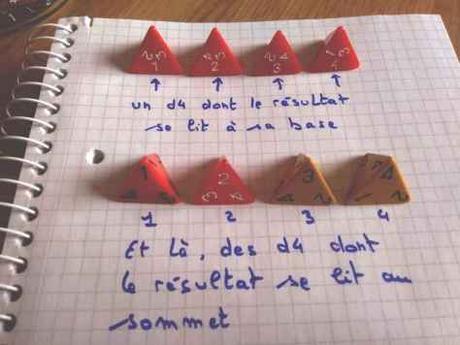 un d4 dont le résultat
se lit à sa base
1 2 3 4
Et là, des d4 dont
le résultat se lit au
sommet